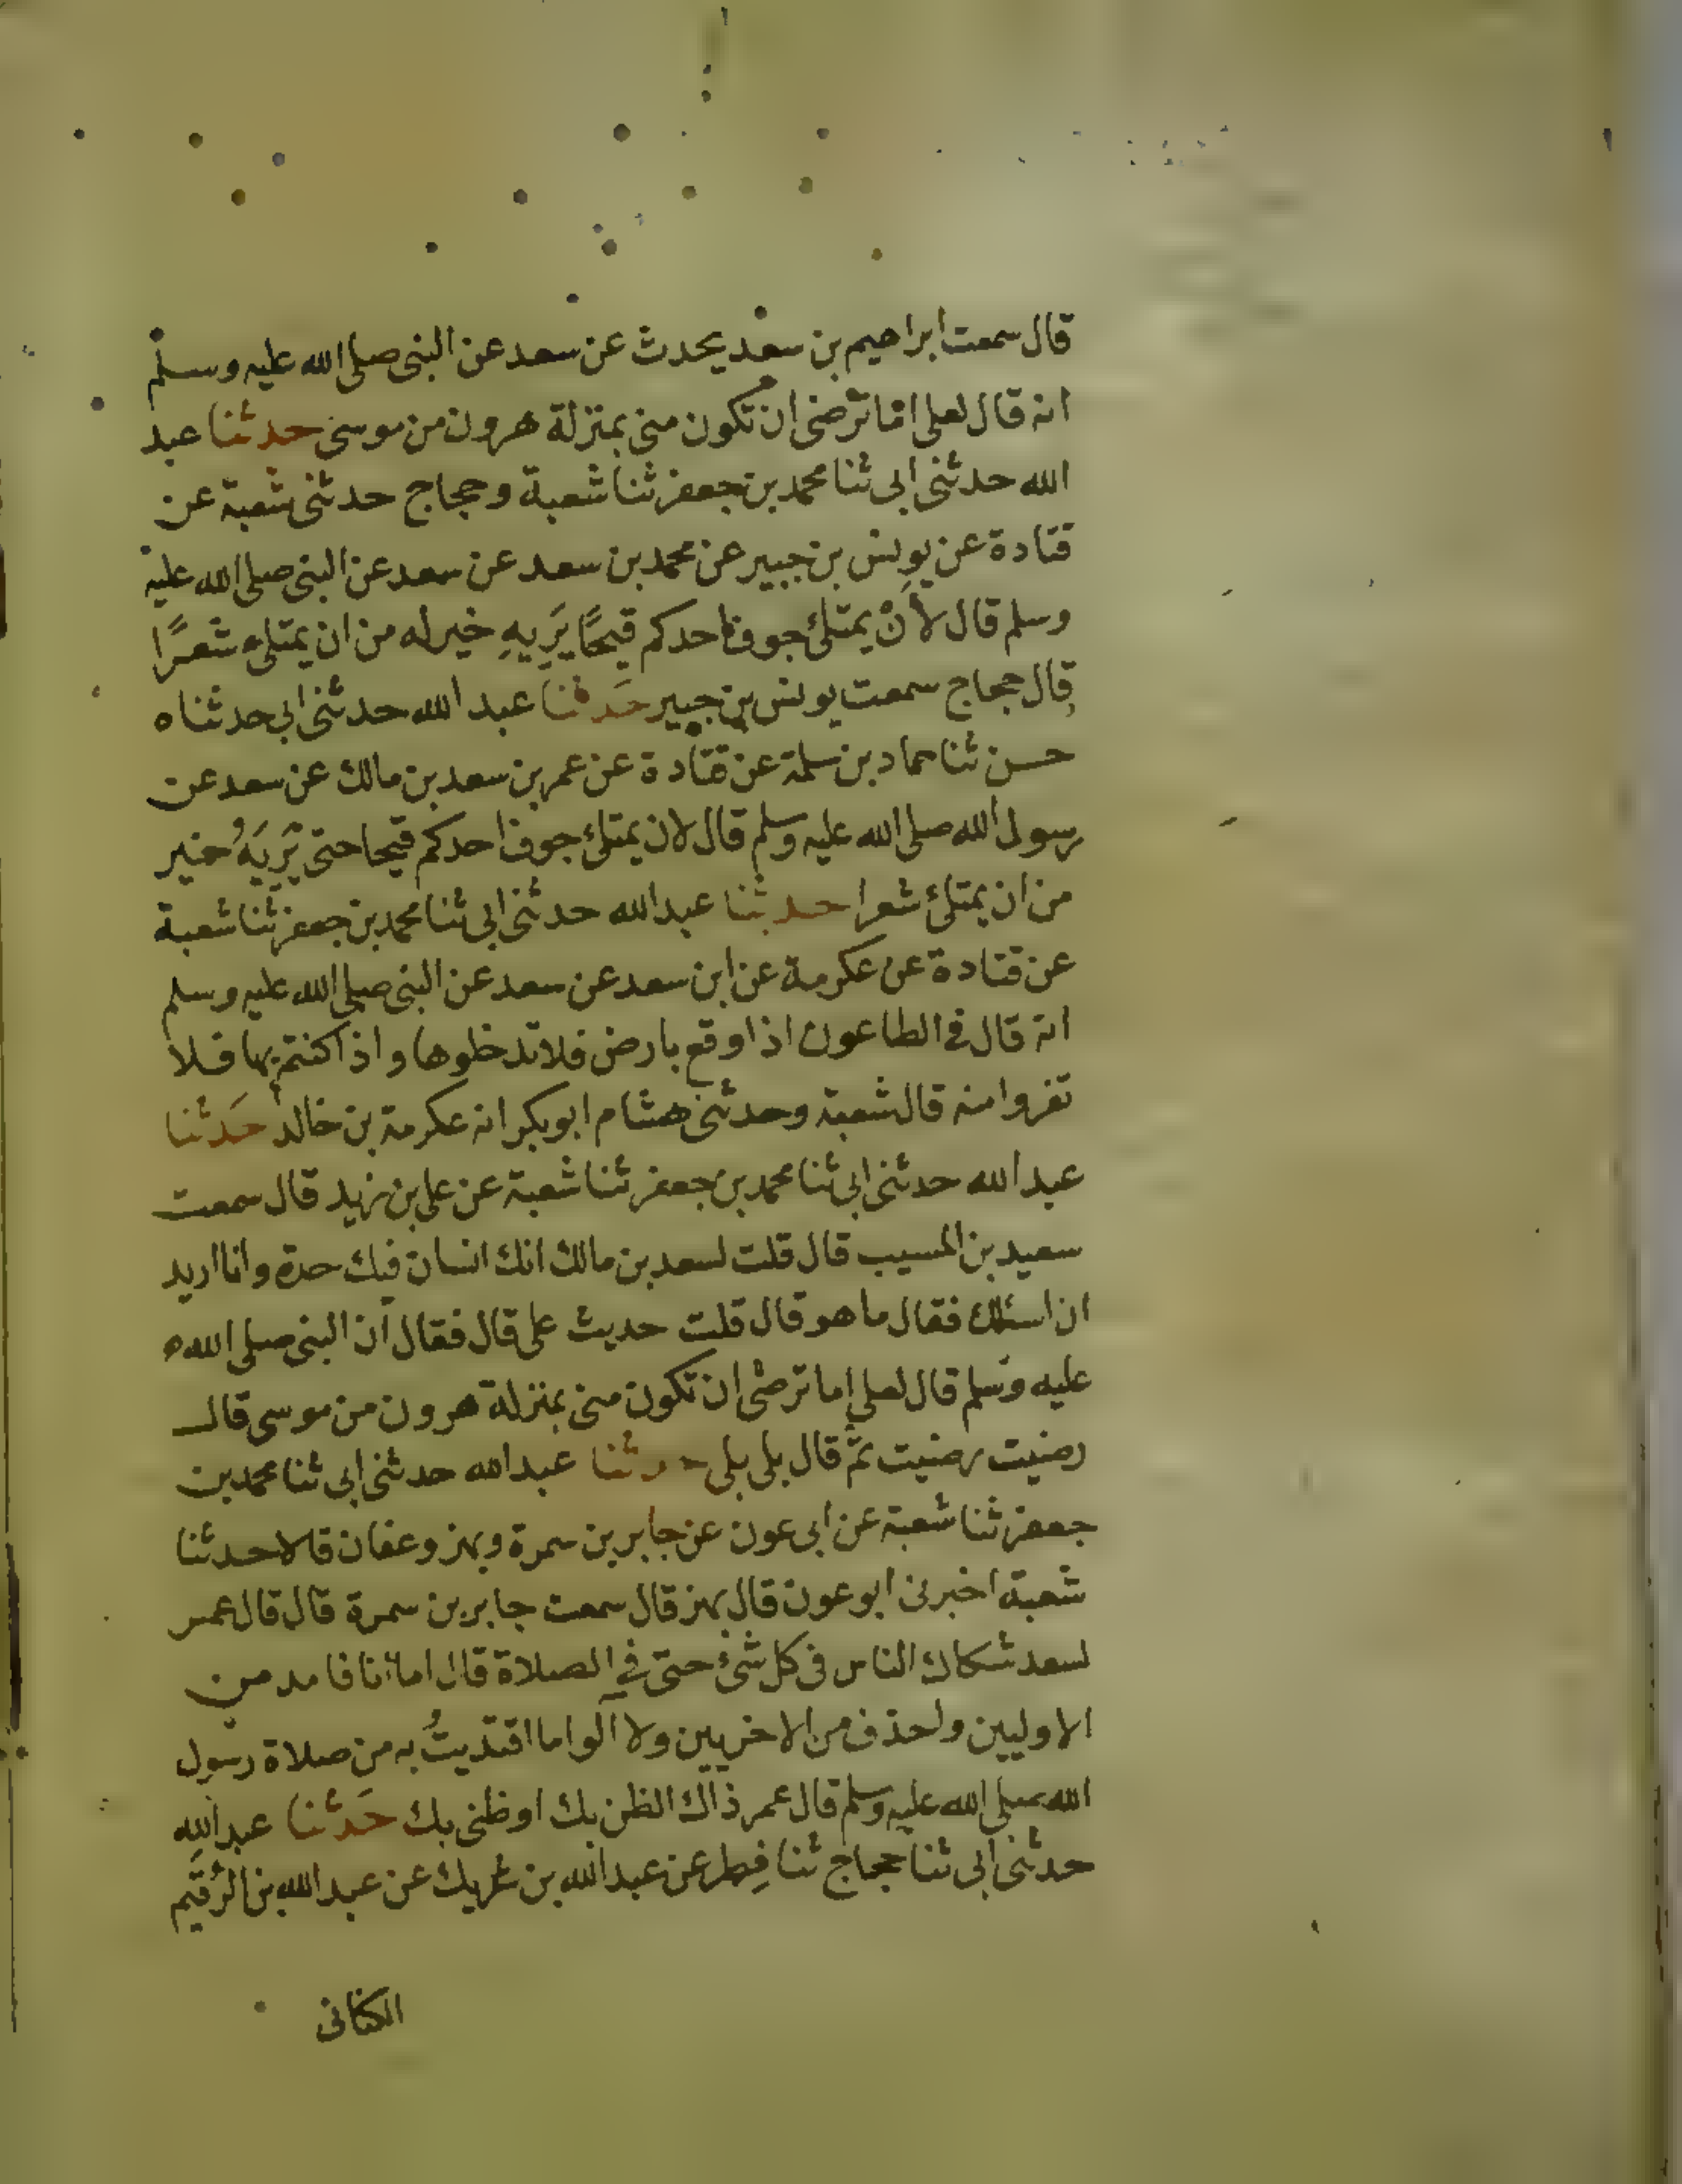 قال سمعت ابراهيم بن سعد يحدث عن سعد عن النبي صلى الله عليه وسلم
انه قال لعلي اما ترضى ان تكون مني بمنزلة هرون من موسى حدثنا عبد
الله حدثني ابي ثنا محمد بن جعفر ثنا شعبة وحجاج حدثني شعبة عن
قتادة عن يونس بن جبير عن محمد بن سعد عن سعد عن النبي صلى الله عليه
وسلم قال لأنْ يمتلئ جوف احدكم قيحًا يَرِيهِ خير له من ان يمتلئ شعرًا
قال حجاج سمعت يونس بن جبير حَدثنا عبد الله حدثني ابي حدثناه
حسن ثنا حماد بن سلمة عن قتادة عن عمر بن سعد بن مالك عن سعد عن
رسول الله صلى الله عليه وسلم قال لان يمتلئ جوف احدكم قيحا حتى يَرِيَهُ خير
من ان يمتلئ شعرا حدثنا عبد الله حدثني ابي ثنا محمد بن جعفر ثنا شعبة
عن قتادة عن عكرمة عن ابن سعد عن سعد عن النبي صلى الله عليه وسلم
انه قال في الطاعون اذا وقع بارض فلا تدخلوها واذا كنتم بها فلا
تفروا منه قال شعبة وحدثني هشام ابو بكر انه عكرمة بن خالد حَدثنا
عبد الله حدثني ابي ثنا محمد بن جعفر ثنا شعبة عن علي بن زيد قال سمعت
سعيد بن المسيب قال قلت لسعد بن مالك انك انسان فيك حدة وانا اريد
ان اسئلك فقال ما هو قال قلت حديث علي قال فقال ان النبي صلى الله
عليه وسلم قال لعلي اما ترضى ان تكون مني بمنزلة هرون من موسى قال
رضيت رضيت ثمّ قال بلى بلى حدثنا عبد الله حدثني ابي ثنا محمد بن
جعفر ثنا شعبة عن ابي عون عن جابر بن سمرة وبهز وعفان قالا حدثنا
شعبة اخبرني ابو عون قال بهز قال سمعت جابر بن سمرة قال قال عمر
لسعد شكاك الناس في كل شئ حتى في الصلاة قال اما أنا فامد من
الاوليين واحذف من الاخريين ولا آلوا ما اقتديتُ به من صلاة رسول
الله صلى الله عليه وسلم قال عمر ذاك الظن بك او ظني بك حَدثنا عبد الله
حدثني ابي ثنا حجاج ثنا فِطر عن عبد الله بن شريك عن عبد الله بن الرُقيم
الكناني